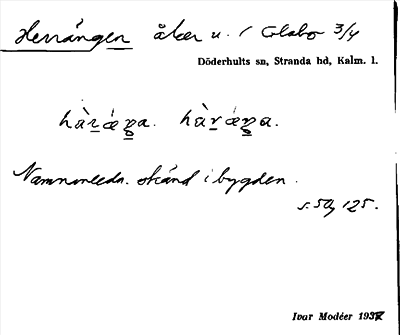 Herrängen åker u. / Glabo 3/4
Döderhults sn, Stranda hd, Kalm. l.
hàrǽŋa. hàrǽŋa.
Namnanledn. okänd i bygden.
s. 50, 125.
Ivar Modéer 1937